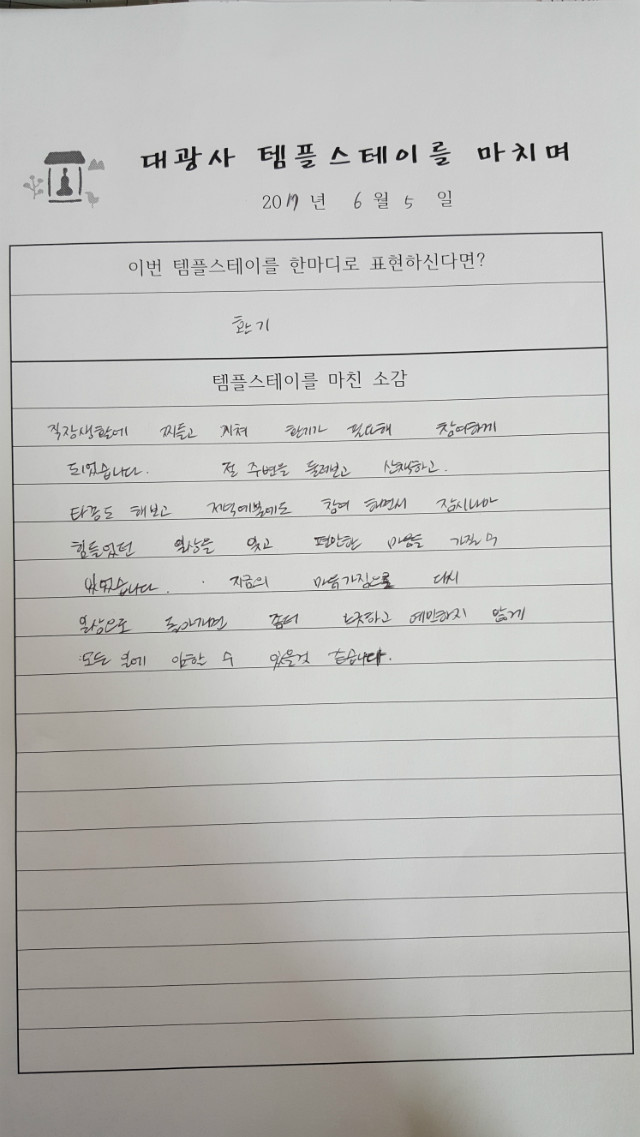 대광사 템플스테이를 마치며
2017 년 6 월 5 일
이번 템플스테이를 한마디로 표현하신다면?
환기
템플스테이를 마친 소감
직장생활에 찌들고 지쳐 환기가 필요해 참여하게
되었습니다. 절 주변을 둘러보고 산책하고.
타종도 해보고 저녁예불에도 참여 하면서 잠시나마
힘들었던 일상을 잊고 편안한 마음을 가질 수
있었습니다. 지금의 마음가짐으로 다시
일상으로 돌아가면 좀더 느긋하고 예민하지 않게
모든 일에 임할 수 있을것 같습니다.